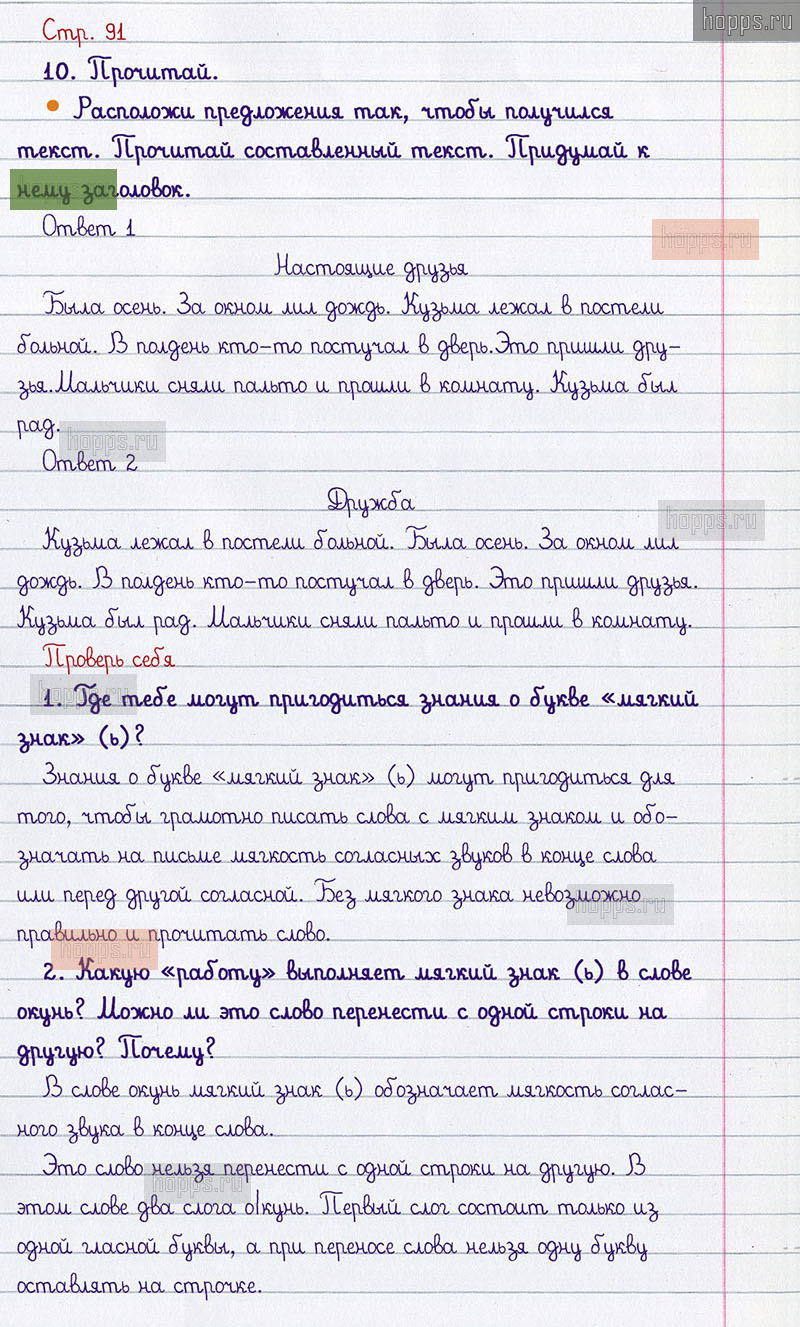 hopps.ru
Стр. 91
10. Прочитай.
• Расположи предложения так, чтобы получился
текст. Прочитай составленный текст. Придумай к
нему заголовок.
Ответ 1
hopps.ru
Настоящие друзья
Была осень. За окном лил дождь. Кузьма лежал в постели
больной. В полдень кто-то постучал в дверь.Это пришли дру-
зья.Мальчики сняли пальто и прошли в комнату. Кузьма был
рад.
hopps.ru
Ответ 2
Дружба
hopps.ru
Кузьма лежал в постели больной. Была осень. За окном лил
дождь. В полдень кто-то постучал в дверь. Это пришли друзья.
Кузьма был рад. Мальчики сняли пальто и прошли в комнату.
Проверь себя
hopps.ru
1. Где тебе могут пригодиться знания о букве «мягкий
знак» (ь)?
Знания о букве «мягкий знак» (ь) могут пригодиться для
того, чтобы грамотно писать слова с мягким знаком и обо-
значать на письме мягкость согласных звуков в конце слова
или перед другой согласной. Без мягкого знака невозможно
hopps.ru
правильно и прочитать слово.
hopps.ru
2. Какую «работу» выполняет мягкий знак (ь) в слове
окунь? Можно ли это слово перенести с одной строки на
другую? Почему?
В слове окунь мягкий знак (ь) обозначает мягкость соглас-
ного звука в конце слова.
Это слово нельзя перенести с одной строки на другую. В
hopps.ru
этом слове два слога о|кунь. Первый слог состоит только из
одной гласной буквы, а при переносе слова нельзя одну букву
оставлять на строчке.